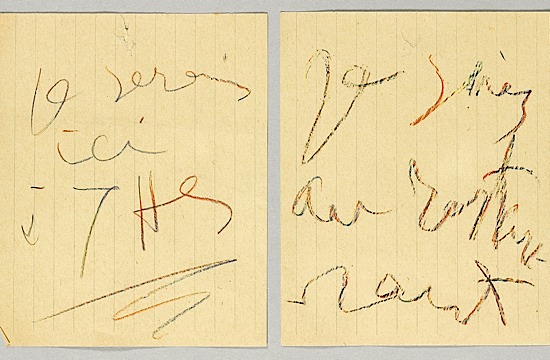 Je serais
ici
à 7 Hs
Je suis
au restau-
rant